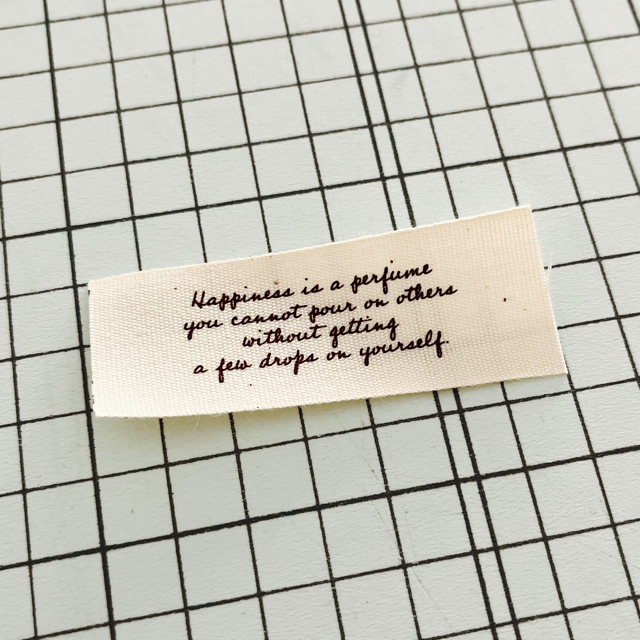 Happiness is a perfume
you cannot pour on others
without getting
a few drops on yourself.